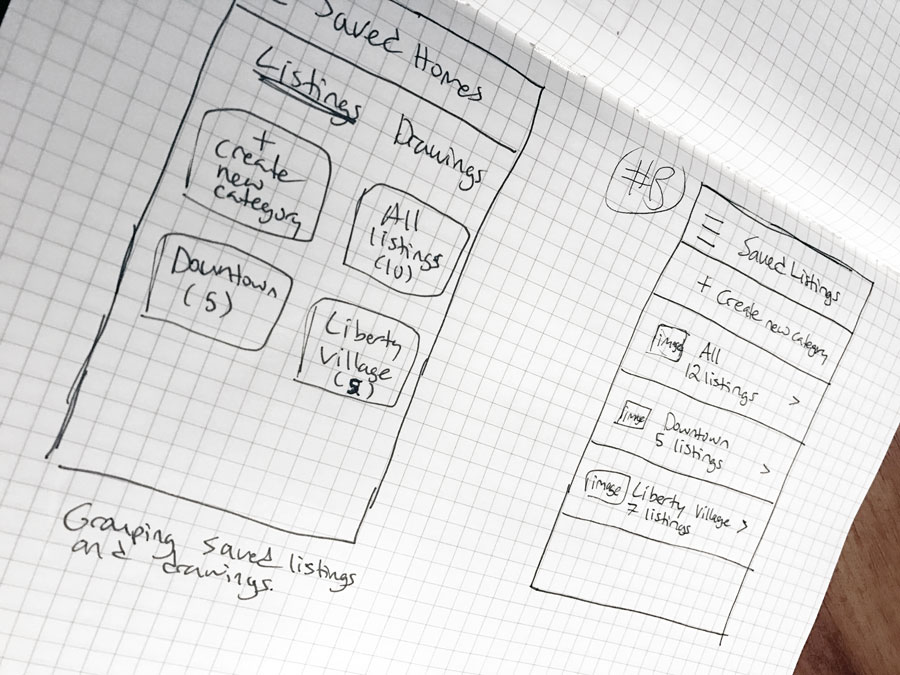 Saved Homes
Listings
Drawings
+
create
new
category
All
listings
(10)
Downtown
(5)
Liberty
Village
Grouping saved listings
and drawings.
#B
Saved Listings
+ Create new category
image
All
12 listings >
image
Downtown
5 listings >
image
Liberty Village >
7 listings